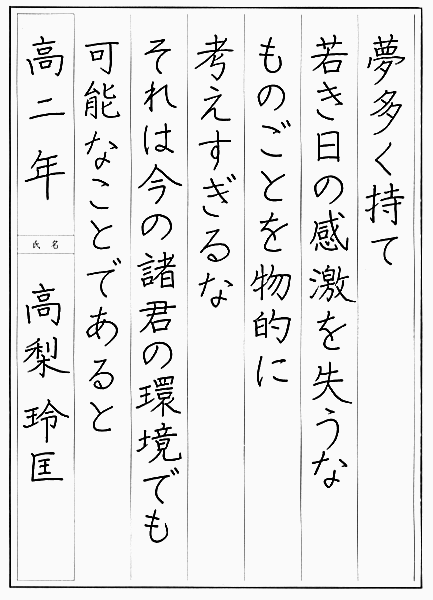 夢多く持て
若き日の感激を失うな
ものごとを物的に
考えすぎるな
それは今の諸君の環境でも
可能なことであると
高二年
氏名
高梨玲匡